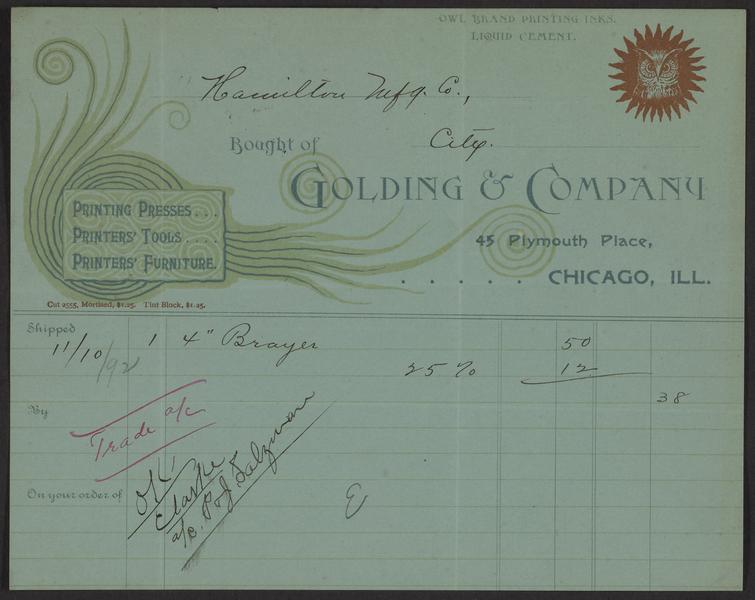 OWL BRAND PRINTING INKS.
LIQUID CEMENT.
Hamilton Mfg. Co.,
City.
Bought of
GOLDING & COMPANY
PRINTING PRESSES...
PRINTERS' TOOLS....
PRINTERS' FURNITURE.
45 Plymouth Place,
. . . . . . CHICAGO, ILL.
Cut 2555, Mortised, $1.25. Tint Block, $1.25.
Shipped
11/10/92 1 4" Brayer 50
25% 12
38
By
Trade a/c
OK
Clarke
a/c. P & J. Salzmann
On your order of
E